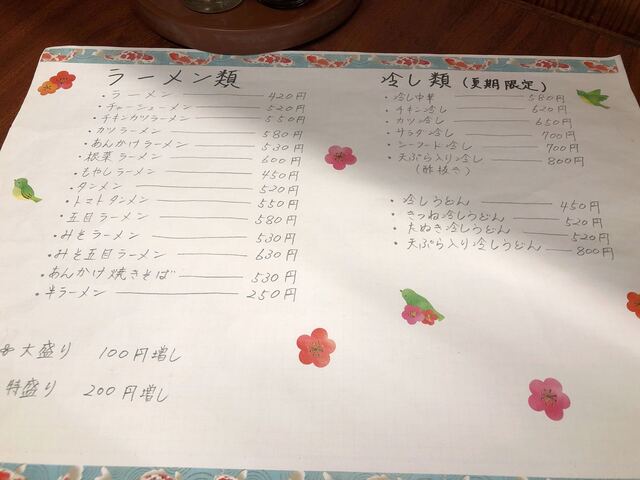 ラーメン類
・ラーメン 420円
・チャーシューメン 520円
・チキンカツラーメン 550円
・カツラーメン 580円
・あんかけラーメン 530円
・根菜ラーメン 600円
・もやしラーメン 450円
・タンメン 520円
・トマトタンメン 550円
・五目ラーメン 580円
・みそラーメン 530円
・みそ五目ラーメン 630円
・あんかけ焼きそば 530円
・半ラーメン 250円
大盛り 100円増し
特盛り 200円増し
冷し類（夏期限定）
・冷し中華 580円
・チキン冷し 620円
・カツ冷し 650円
・サラダ冷し 700円
・シーフード冷し 700円
・天ぷら入り冷し 800円
（酢抜き）
・冷しうどん 450円
・きつね冷しうどん 520円
・たぬき冷しうどん 520円
・天ぷら入り冷しうどん 800円